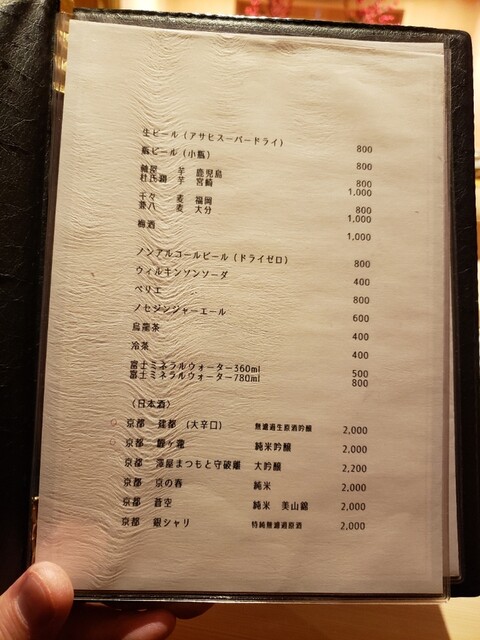 生ビール（アサヒスーパードライ） 800
瓶ビール（小瓶） 800
芋 鹿児島 800
杜氏潤 芋 宮崎 1,000
千々 麦 福岡 800
兼八 麦 大分 1,000
梅酒 1,000
ノンアルコールビール（ドライゼロ） 800
ウィルキンソンソーダ 400
ペリエ 800
ノセジンジャーエール 600
烏龍茶 400
冷茶 400
富士ミネラルウォーター360ml 500
富士ミネラルウォーター780ml 800
（日本酒）
京都 建都 （大辛口） 無濾過生原酒吟醸 2,000
京都 龍 純米吟醸 2,000
京都 澤屋まつもと守破離 大吟醸 2,200
京都 京の春 純米 2,000
京都 蒼空 純米 美山錦 2,000
京都 銀シャリ 特純無濾過原酒 2,000